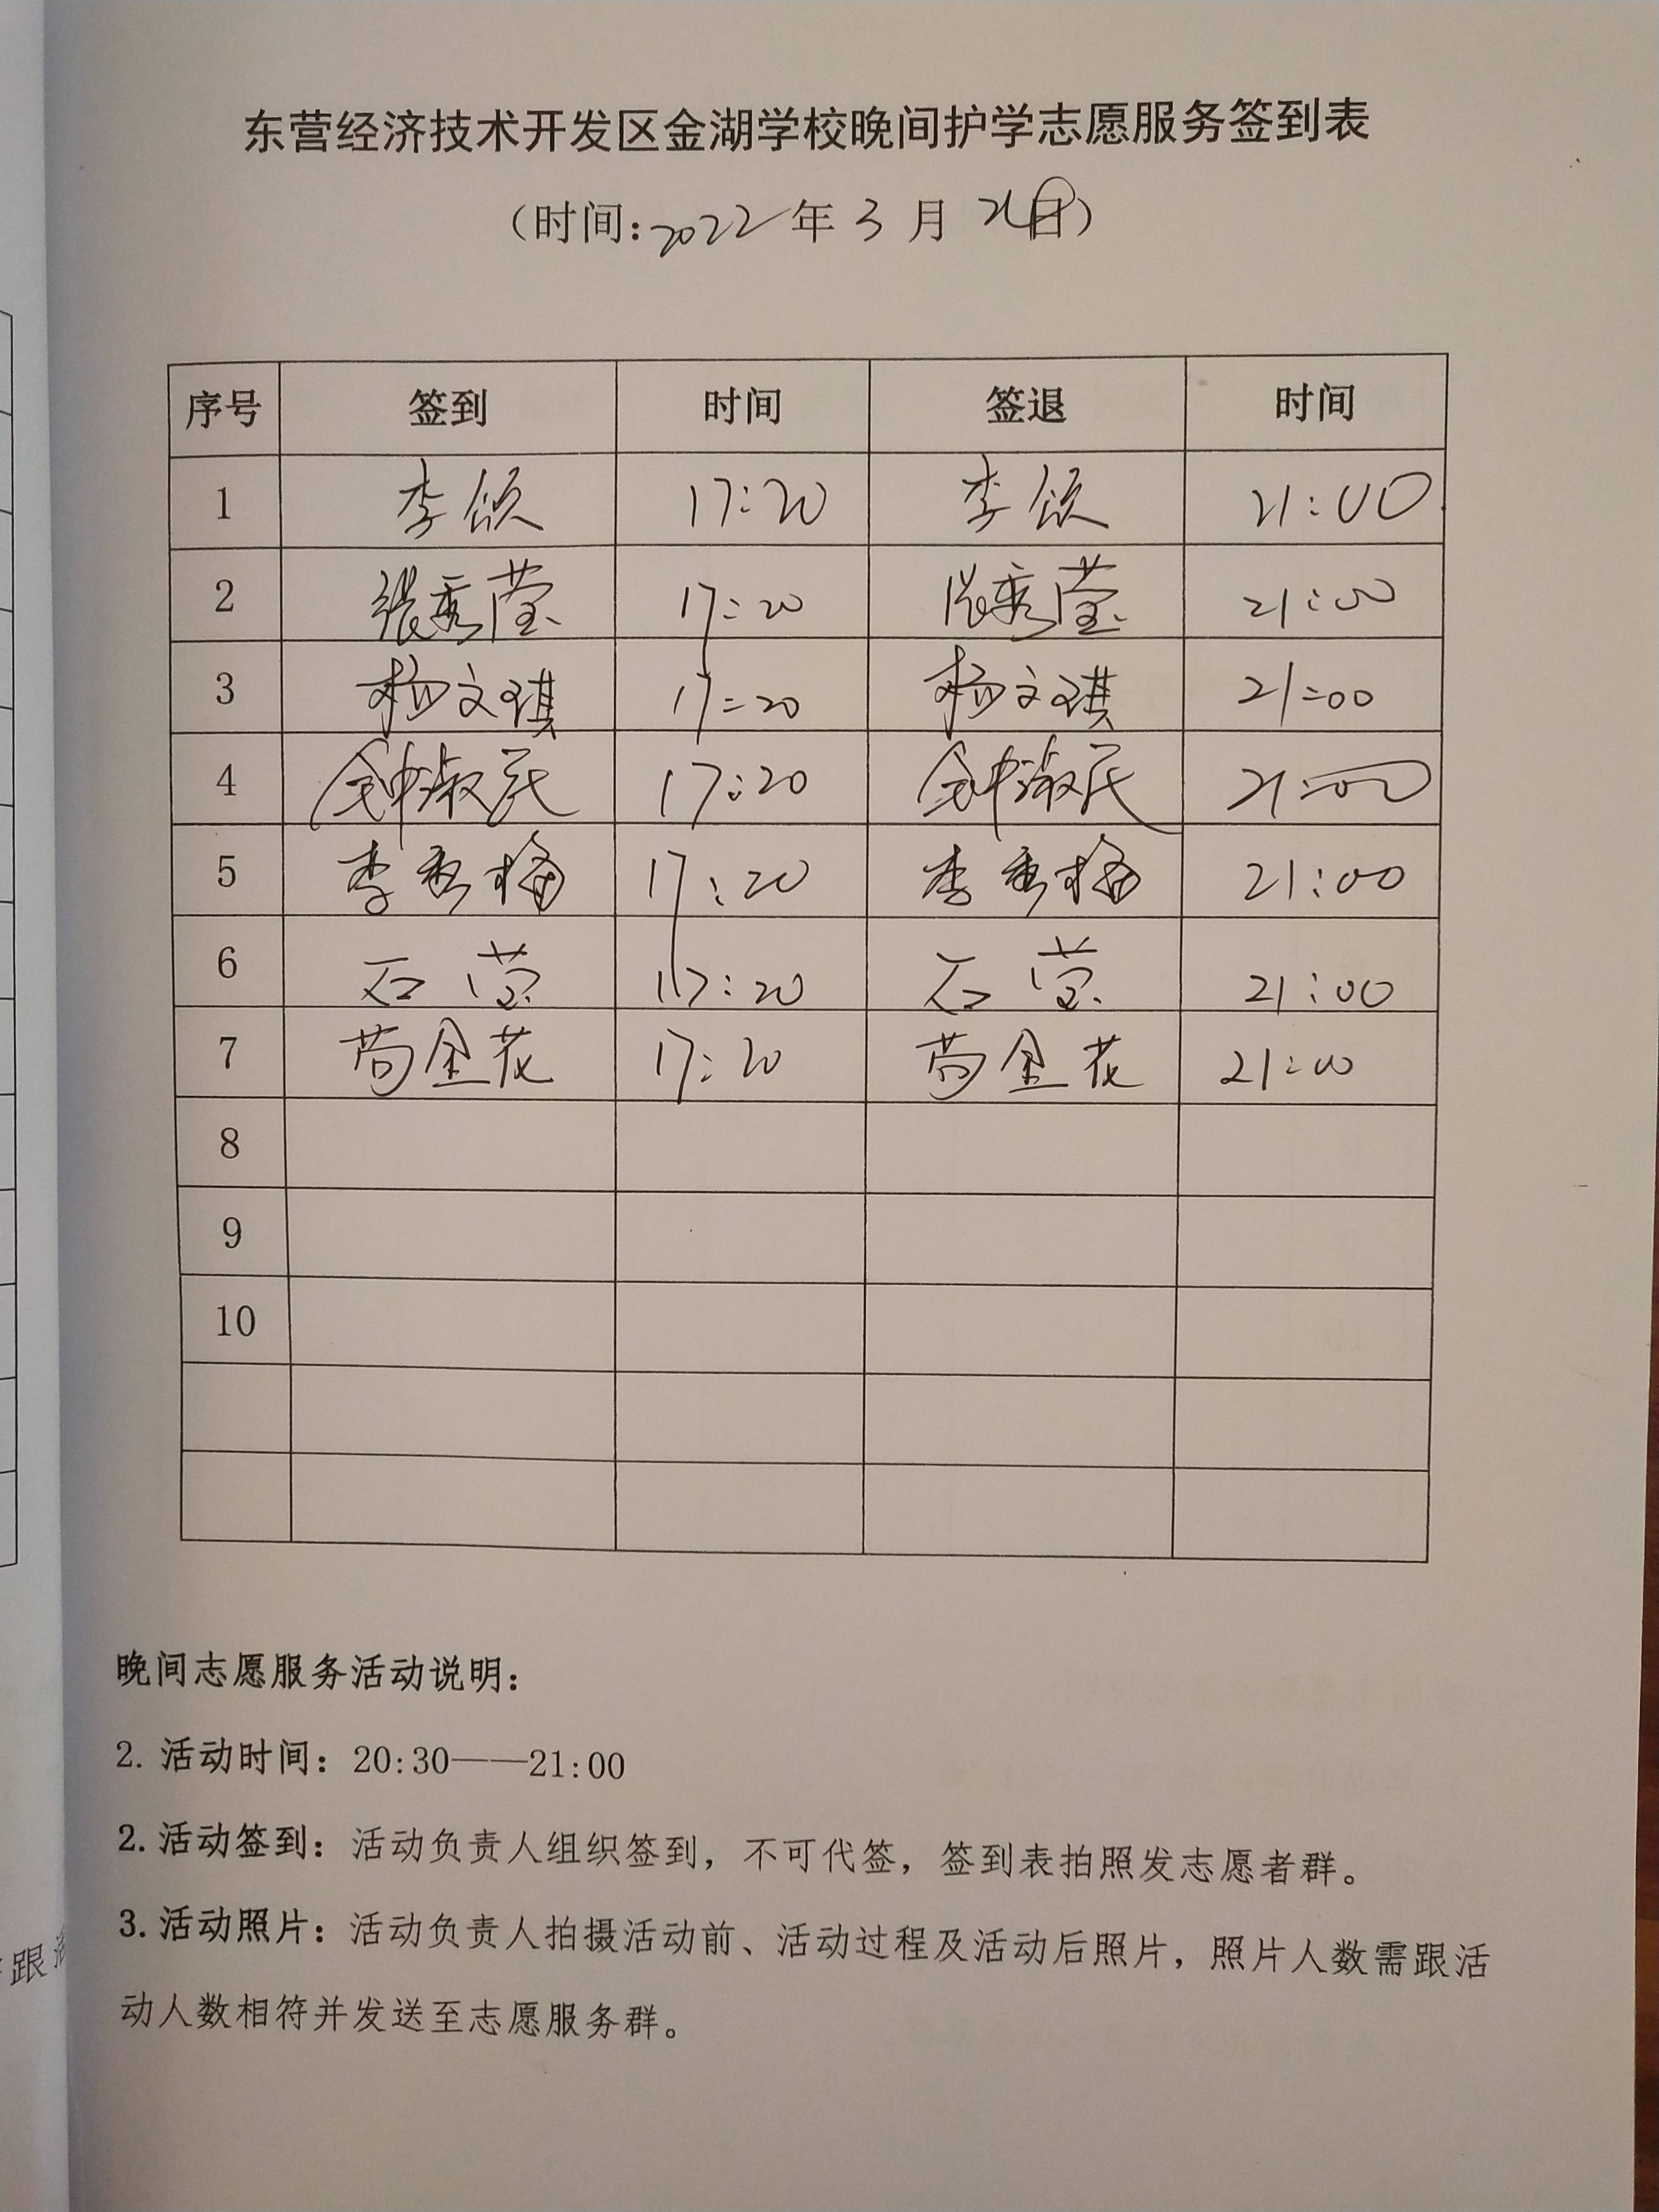 东营经济技术开发区金湖学校晚间护学志愿服务签到表
（时间：2022年 3 月 日）
序号 签到 时间 签退 时间
1 李颂 17:20 李颂 21:00
2 张秀莹 17:20 张秀莹 21:00
3 杨文琪 17:20 杨文琪 21:00
4 钟淑民 17:20 钟淑民 21:00
5 李秀梅 17:20 李秀梅 21:00
6 石莹 17:20 石莹 21:00
7 苟金花 17:20 苟金花 21:00
8
9
10
晚间志愿服务活动说明：
2. 活动时间：20:30——21:00
2. 活动签到：活动负责人组织签到，不可代签，签到表拍照发志愿者群。
3. 活动照片：活动负责人拍摄活动前、活动过程及活动后照片，照片人数需跟活
动人数相符并发送至志愿服务群。
跟